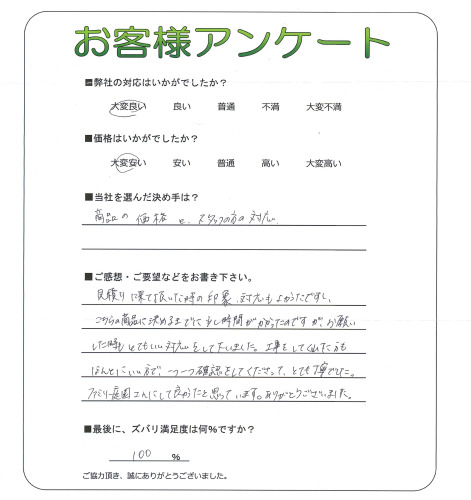 お客様アンケート
■弊社の対応はいかがでしたか?
大変良い 良い 普通 不満 大変不満
■価格はいかがでしたか?
大変安い 安い 普通 高い 大変高い
■当社を選んだ決め手は?
商品の価格と、スタッフの方の対応。
■ご感想・ご要望などをお書き下さい。
見積りに来て頂いた時の印象、対応もよかったですし、
こちらの商品に決めるまでに少し時間がかかったのですが、お願い
した時もとてもいい対応をして下いました。工事をしてくれた方も
ほんとにいい方で、一つ一つ確認をしてくださって、とても丁寧でした。
ファミリー庭園さんにして良かったと思っています。ありがとうございました。
■最後に、ズバリ満足度は何%ですか?
100 %
ご協力頂き、誠にありがとうございました。